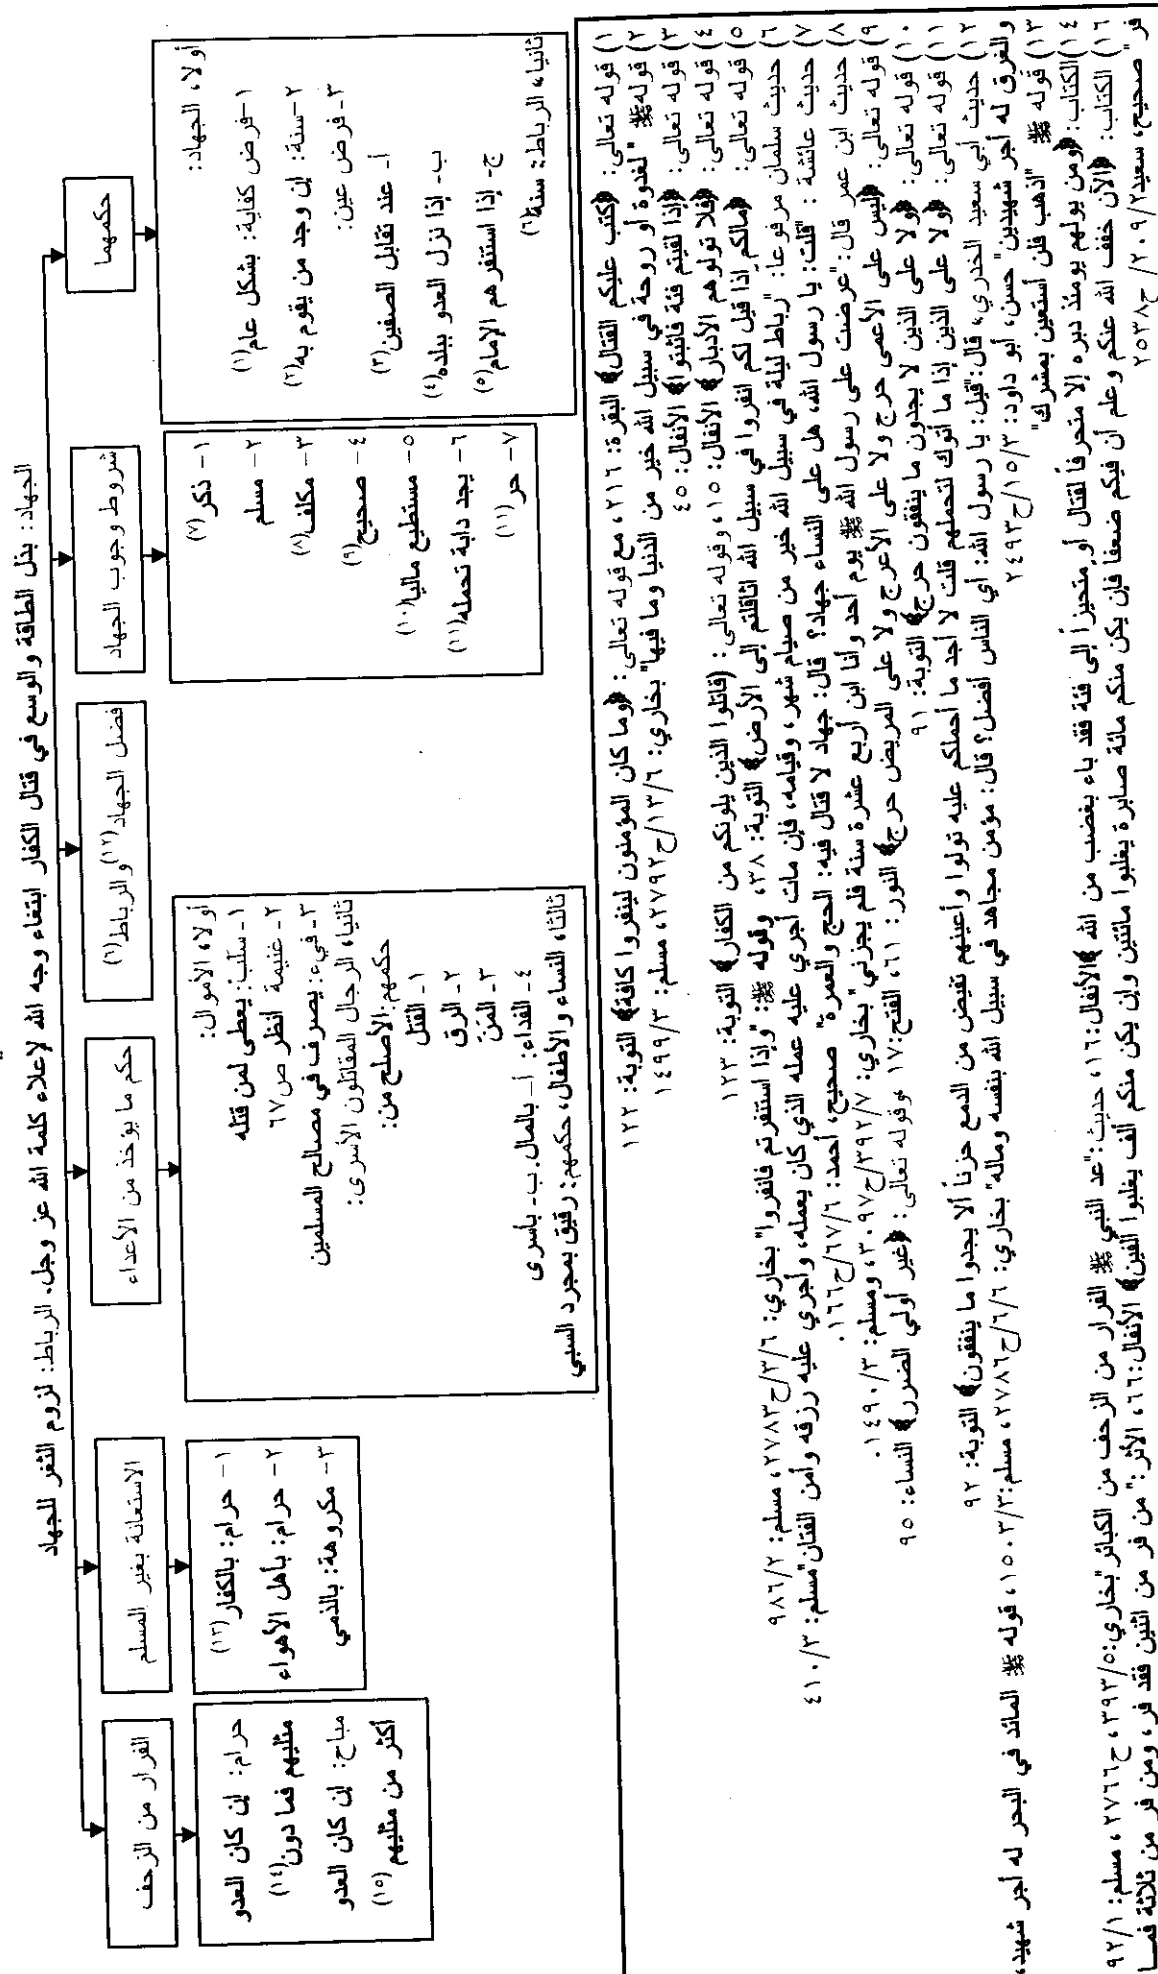 الجهاد: بذل الطاقة والوسع في قتال الكفار ابتغاء وجه الله لإعلاء كلمة الله عز وجل. الرباط: لزوم الثغر للجهاد
حكمهما
أولا، الجهاد:
١- فرض كفاية: بشكل عام(١)
٢- سنة: إن وجد من يقوم به(٢)
٣- فرض عين:
أ- عند تقابل الصفين(٣)
ب- إذا نزل العدو ببلده(٤)
ج- إذا استنفرهم الإمام(٥)
ثانيا، الرباط: سنة(٦)
شروط وجوب الجهاد
١- ذكر(٧)
٢- مسلم
٣- مكلف(٨)
٤- صحيح(٩)
٥- مستطيع ماليا(١٠)
٦- يجد دابة تحمله(١١)
٧- حر(١١)
فضل الجهاد(١٢) والرباط(٦)
حكم ما يؤخذ من الأعداء
أولا، الأموال:
١- سلب: يعطى لمن قتله
٢- غنيمة انظر ص٦٧
٣- فيء: يصرف في مصالح المسلمين
ثانيا، الرجال المقاتلون الأسرى:
حكمهم: الأصلح من:
١- القتل
٢- الرق
٣- المن
٤- الفداء: أ- بالمال. ب- بأسرى
ثالثا، النساء والأطفال، حكمهم: رقيق بمجرد السبي
الاستعانة بغير المسلم
١- حرام: بالكفار(١٣)
٢- حرام: بأهل الأهواء
٣- مكروهة: بالذمي
الفرار من الزحف
حرام: إن كان العدو
مثليهم فما دون(١٤)
مباح: إن كان العدو
أكثر من مثليهم(١٥)
١) قوله تعالى: ﴿كتب عليكم القتال﴾ البقرة: ٢١٦، مع قوله تعالى: ﴿وما كان المؤمنون لينفروا كافة﴾ التوبة: ١٢٢
٢) قوله ﷺ "لغدوة أو روحة في سبيل الله خير من الدنيا وما فيها" بخاري: ١٣/٦/ح٢٧٩٢، مسلم: ١٤٩٩/٣
٣) قوله تعالى: ﴿إذا لقيتم فئة فاثبتوا﴾ الأنفال: ٤٥
٤) قوله تعالى: ﴿فلا تولوهم الأدبار﴾ الأنفال: ١٥، وقوله تعالى: (قاتلوا الذين يلونكم من الكفار﴾ التوبة: ١٢٣
٥) قوله تعالى: ﴿مالكم إذا قيل لكم انفروا في سبيل الله اثاقلتم إلى الأرض﴾ التوبة: ٣٨، وقوله ﷺ: "وإذا استنفرتم فانفروا" بخاري: ٣/٦/ح٢٧٨٣، مسلم: ٩٨٦/٢
٦) حديث سلمان مرفوعا: "رباط ليلة في سبيل الله خير من صيام شهر، وقيامه، فإن مات أجري عليه عمله الذي كان يعمله، وأجري عليه رزقه وأمن الفتان" مسلم: ٤١٠/٣
٧) حديث عائشة: "قلت: يا رسول الله، هل على النساء جهاد؟ قال: جهاد لا قتال فيه: الحج والعمرة" صحيح، أحمد: ٦٧/٦/ح١٦٦.
٨) حديث ابن عمر قال: "عرضت على رسول الله ﷺ يوم أحد وأنا ابن أربع عشرة سنة فلم يجزني" بخاري: ٣٩٢/٧/ح٣٠٩٧، ومسلم: ١٤٩٠/٣.
٩) قوله تعالى: ﴿ليس على الأعمى حرج ولا على الأعرج ولا على المريض حرج﴾ النور: ٦١، الفتح: ١٧، وقوله تعالى: ﴿غير أولي الضرر﴾ النساء: ٩٥
١٠) قوله تعالى: ﴿ولا على الذين لا يجدون ما ينفقون حرج﴾ التوبة: ٩١
١١) قوله تعالى: ﴿ولا على الذين إذا ما أتوك لتحملهم قلت لا أجد ما أحملكم عليه تولوا وأعينهم تفيض من الدمع حزناً ألا يجدوا ما ينفقون﴾ التوبة: ٩٢
١٢) حديث أبي سعيد الخدري، قال: "قيل: يا رسول الله: أي الناس أفضل؟ قال: مؤمن مجاهد في سبيل الله بنفسه وماله" بخاري: ٦/٦/ح٢٧٨٦، مسلم: ١٥٠٣/٣، قوله ﷺ المائد في البحر له أجر شهيد،
والغرق له أجر شهيدين" حسن، أبو داود: ١٥/٣/ح٢٤٩٣
١٣) قوله ﷺ "اذهب فلن أستعين بمشرك"
١٤) الكتاب: ﴿ومن يولهم يومئذ دبره إلا متحرفاً لقتال أو متحيزاً إلى فئة فقد باء بغضب من الله﴾ الأنفال: ١٦، حديث: "عد النبي ﷺ الفرار من الزحف من الكبائر" بخاري: ٣٩٣/٥، ح٢٧٦٦، مسلم: ٩٢/١
١٦) الكتاب: ﴿الآن خفف الله عنكم وعلم أن فيكم ضعفا فإن يكن منكم مائة صابرة يغلبوا مائتين وإن يكن منكم ألف يغلبوا ألفين﴾ الأنفال: ٦٦، الأثر: "من فر من اثنين فقد فر، ومن فر من ثلاثة فما
فر" صحيح، سعيد ٢٠٩/٢/ح٢٥٣٨